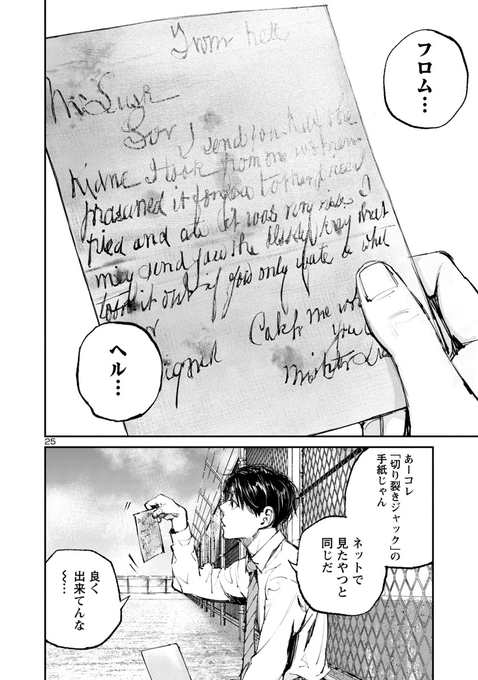 From hell
Mr Lusk
Sor I send you half the
Kidne I took from one women
prasarved it for you tother piece I
fried and ate it was very nise I
may send you the bloody knif that
took it out if you only wate a whil
signed Catch me wh
you
Mishter Lus
フロム…
ヘル…
25
あーコレ
「切り裂きジャック」の
手紙じゃん
ネットで
見たやつと
同じだ
良く
出来てんな
〜…